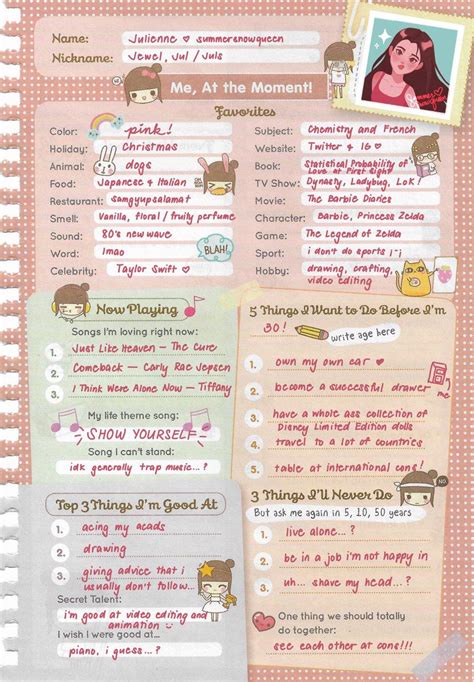 Name: Julienne ♡ summersnowqueen
Nickname: Jewel, Jul / Juls
Me, At the Moment!
Favorites
Color: pink!
Holiday: Christmas
Animal: dogs
Food: Japanese & Italian
Restaurant: samgyupsalamat
Smell: Vanilla, floral / fruity perfume
Sound: 80's new wave
Word: lmao
Celebrity: Taylor Swift ♡
BLAH!
Subject: Chemistry and French
Website: Twitter & IG ♡
Book: Statistical Probability of Love at First Sight
TV Show: Dynasty, Ladybug, LoK!
Movie: The Barbie Diaries
Character: Barbie, Princess Zelda
Game: The Legend of Zelda
Sport: i don't do sports
Hobby: drawing, crafting,
video editing
Now Playing
Songs I'm loving right now:
1. Just Like Heaven - The Cure
2. Comeback - Carly Rae Jepsen
3. I Think We're Alone Now - Tiffany
My life theme song:
SHOW YOURSELF
Song I can't stand:
idk generally trap music...?
5 Things I Want to Do Before I'm
30!
write age here
1. own my own car ♡
2. become a successful drawer
3. have a whole ass collection of
Disney Limited Edition dolls
4. travel to a lot of countries
5. table at international cons!
Top 3 Things I'm Good At
1. acing my acads
2. drawing
3. giving advice that i
usually don't follow...
Secret Talent:
i'm good at video editing and
animation
I wish I were good at...
piano, i guess...?
3 Things I'll Never Do
NO
But ask me again in 5, 10, 50 years
1. live alone...?
2. be in a job i'm not happy in
3. uh... shave my head...?
One thing we should totally
do together:
see each other at cons!!!